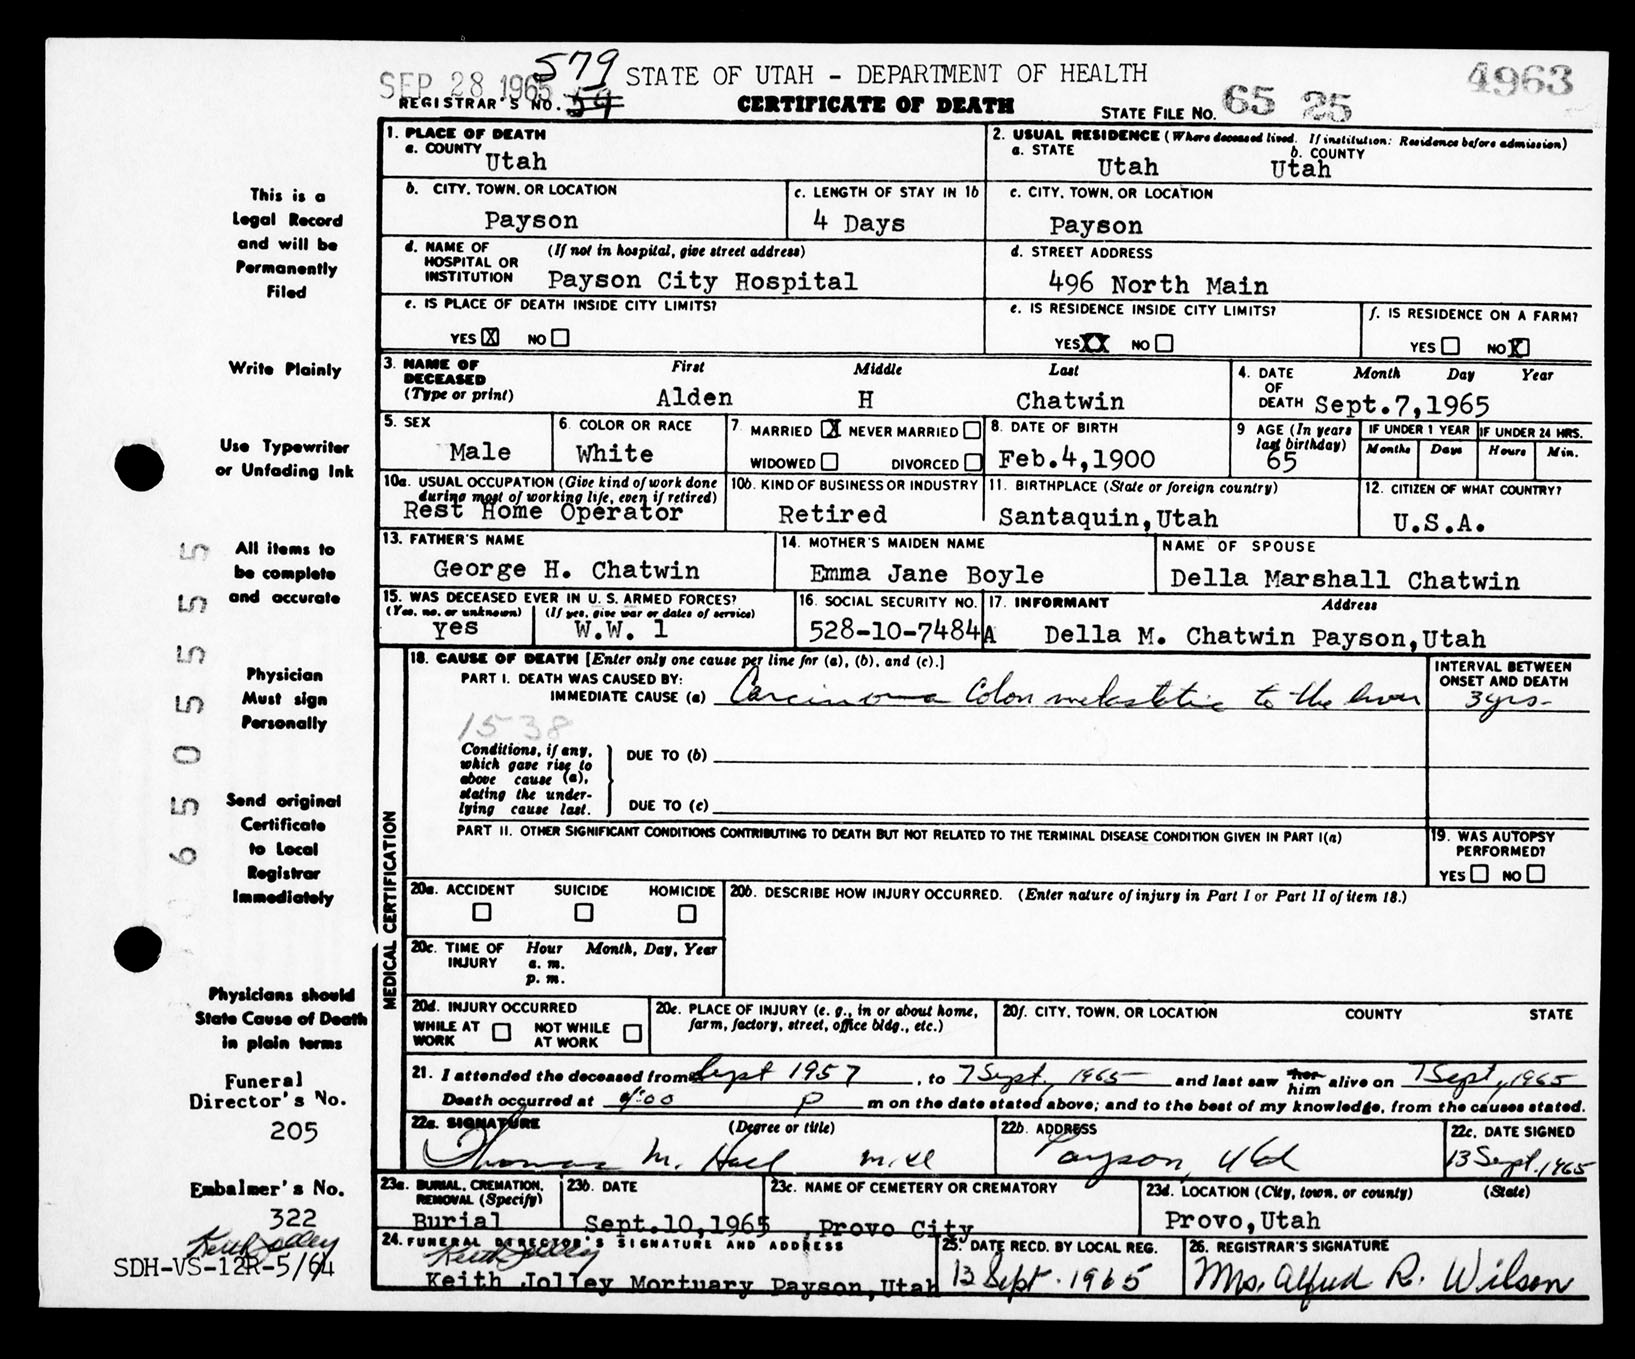 SEP 28 1965 579 STATE OF UTAH - DEPARTMENT OF HEALTH 4963
REGISTRAR'S NO. 59 CERTIFICATE OF DEATH STATE FILE NO. 65 25
1. PLACE OF DEATH
a. COUNTY
Utah
2. USUAL RESIDENCE (Where deceased lived. If institution: Residence before admission)
a. STATE b. COUNTY
Utah Utah
b. CITY, TOWN, OR LOCATION
Payson
c. LENGTH OF STAY IN 1b
4 Days
c. CITY, TOWN, OR LOCATION
Payson
d. NAME OF (If not in hospital, give street address)
HOSPITAL OR
INSTITUTION Payson City Hospital
d. STREET ADDRESS
496 North Main
e. IS PLACE OF DEATH INSIDE CITY LIMITS?
YES X NO
e. IS RESIDENCE INSIDE CITY LIMITS?
YES XX NO
f. IS RESIDENCE ON A FARM?
YES NO X
3. NAME OF First Middle Last
DECEASED
(Type or print) Alden H Chatwin
4. DATE Month Day Year
OF
DEATH Sept.7,1965
5. SEX
Male
6. COLOR OR RACE
White
7. MARRIED X NEVER MARRIED
WIDOWED DIVORCED
8. DATE OF BIRTH
Feb.4,1900
9 AGE (In years
last birthday)
65
IF UNDER 1 YEAR IF UNDER 24 HRS.
Months Days Hours Min.
10a. USUAL OCCUPATION (Give kind of work done
during most of working life, even if retired)
Rest Home Operator
10b. KIND OF BUSINESS OR INDUSTRY
Retired
11. BIRTHPLACE (State or foreign country)
Santaquin,Utah
12. CITIZEN OF WHAT COUNTRY?
U.S.A.
13. FATHER'S NAME
George H. Chatwin
14. MOTHER'S MAIDEN NAME
Emma Jane Boyle
NAME OF SPOUSE
Della Marshall Chatwin
15. WAS DECEASED EVER IN U. S. ARMED FORCES?
(Yes, no, or unknown) (If yes, give war or dates of service)
yes W.W. 1
16. SOCIAL SECURITY NO.
528-10-7484A
17. INFORMANT Address
Della M. Chatwin Payson,Utah
MEDICAL CERTIFICATION
18. CAUSE OF DEATH [Enter only one cause per line for (a), (b), and (c).]
PART I. DEATH WAS CAUSED BY:
IMMEDIATE CAUSE (a) Carcinoma Colon metastatic to the liver
INTERVAL BETWEEN
ONSET AND DEATH
3 yrs-
1538
Conditions, if any,
which gave rise to
above cause (a),
stating the under-
lying cause last.
DUE TO (b)
DUE TO (c)
PART II. OTHER SIGNIFICANT CONDITIONS CONTRIBUTING TO DEATH BUT NOT RELATED TO THE TERMINAL DISEASE CONDITION GIVEN IN PART I(a)
19. WAS AUTOPSY
PERFORMED?
YES NO
20a. ACCIDENT SUICIDE HOMICIDE
20b. DESCRIBE HOW INJURY OCCURRED. (Enter nature of injury in Part I or Part II of item 18.)
20c. TIME OF Hour Month, Day, Year
INJURY a. m.
p. m.
20d. INJURY OCCURRED
WHILE AT WORK NOT WHILE AT WORK
20e. PLACE OF INJURY (e. g., in or about home,
farm, factory, street, office bldg., etc.)
20f. CITY, TOWN, OR LOCATION COUNTY STATE
21. I attended the deceased from Sept 1957, to 7 Sept, 1965 and last saw her him alive on 7 Sept, 1965
Death occurred at 9:00 p m on the date stated above; and to the best of my knowledge, from the causes stated.
22a. SIGNATURE (Degree or title)
Thomas M. Hall M.D.
22b. ADDRESS
Payson, Utah
22c. DATE SIGNED
13 Sept. 1965
23a. BURIAL, CREMATION,
REMOVAL (Specify)
Burial
23b. DATE
Sept.10,1965
23c. NAME OF CEMETERY OR CREMATORY
Provo City
23d. LOCATION (City, town, or county) (State)
Provo,Utah
24. FUNERAL DIRECTOR'S SIGNATURE AND ADDRESS
Keith Jolley
Keith Jolley Mortuary Payson,Utah
25. DATE RECD. BY LOCAL REG.
13 Sept. 1965
26. REGISTRAR'S SIGNATURE
Mrs. Alfred R. Wilson
This is a
Legal Record
and will be
Permanently
Filed
Write Plainly
Use Typewriter
or Unfading Ink
All items to
be complete
and accurate
Physician
Must sign
Personally
Send original
Certificate
to Local
Registrar
Immediately
Physicians should
State Cause of Death
in plain terms
Funeral
Director's No.
205
Embalmer's No.
322
Keith Jolley
SDH-VS-12R-5/64
6 5 0 5 5 5 5